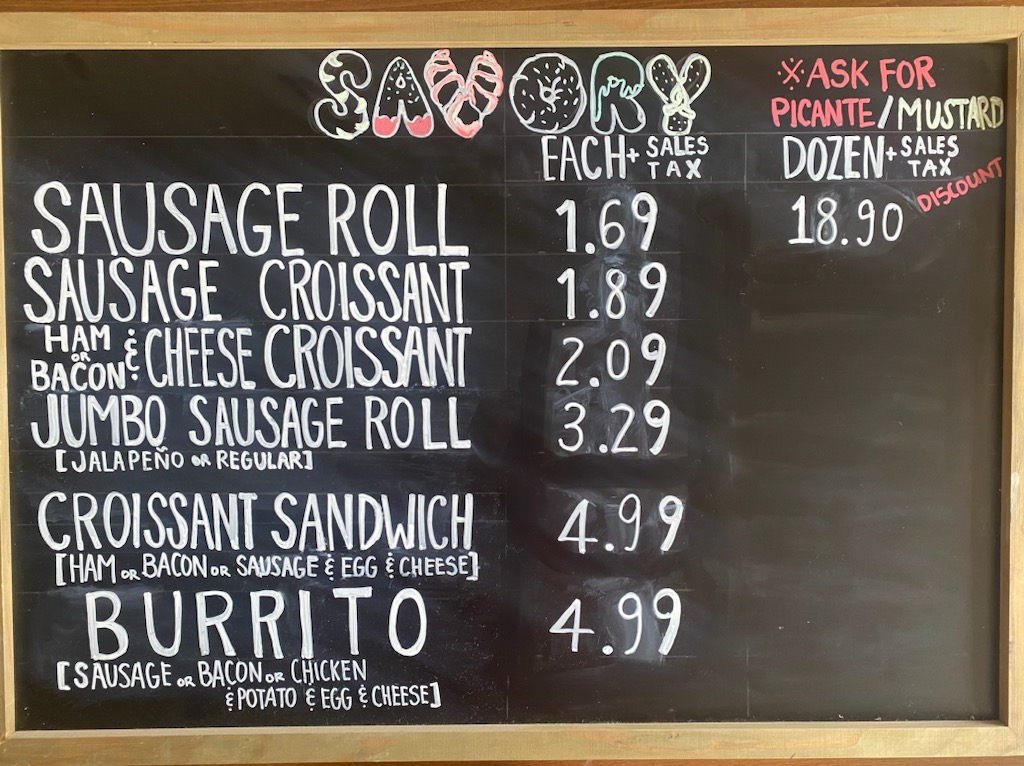 SAVORY
※ASK FOR
PICANTE/MUSTARD
EACH + SALES TAX
DOZEN + SALES TAX
DISCOUNT
SAUSAGE ROLL 1.69 18.90
SAUSAGE CROISSANT 1.89
HAM OR BACON & CHEESE CROISSANT 2.09
JUMBO SAUSAGE ROLL 3.29
[JALAPEÑO OR REGULAR]
CROISSANT SANDWICH 4.99
[HAM OR BACON OR SAUSAGE & EGG & CHEESE]
BURRITO 4.99
[SAUSAGE OR BACON OR CHICKEN
& POTATO & EGG & CHEESE]